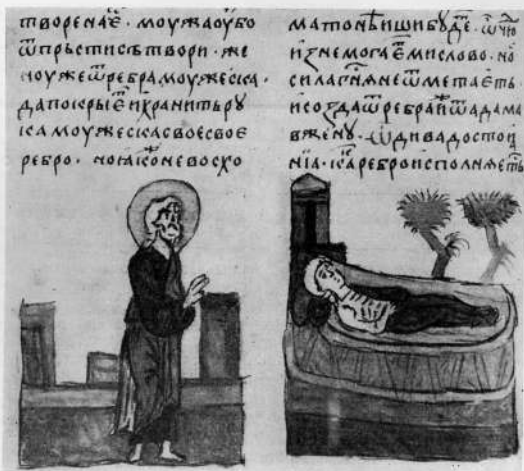 творенае҃. моужаоубо
ѿпрьстисътвори. же
ноужеѿребрамоужеска.
дапокрыѥ҃ихранитьрѹ
камоужескасвоесвоѥ
ребро. ноꙗ҇коневосхо
матонѣищибꙋде.
иꙁнемогаѥ҃мислово. но
силагн҃ꙗнеѿметаєть
исоꙁдаѿребра ѿадама
вженꙋ. ѡдивадостои
нїа. ребро исполнꙗеть